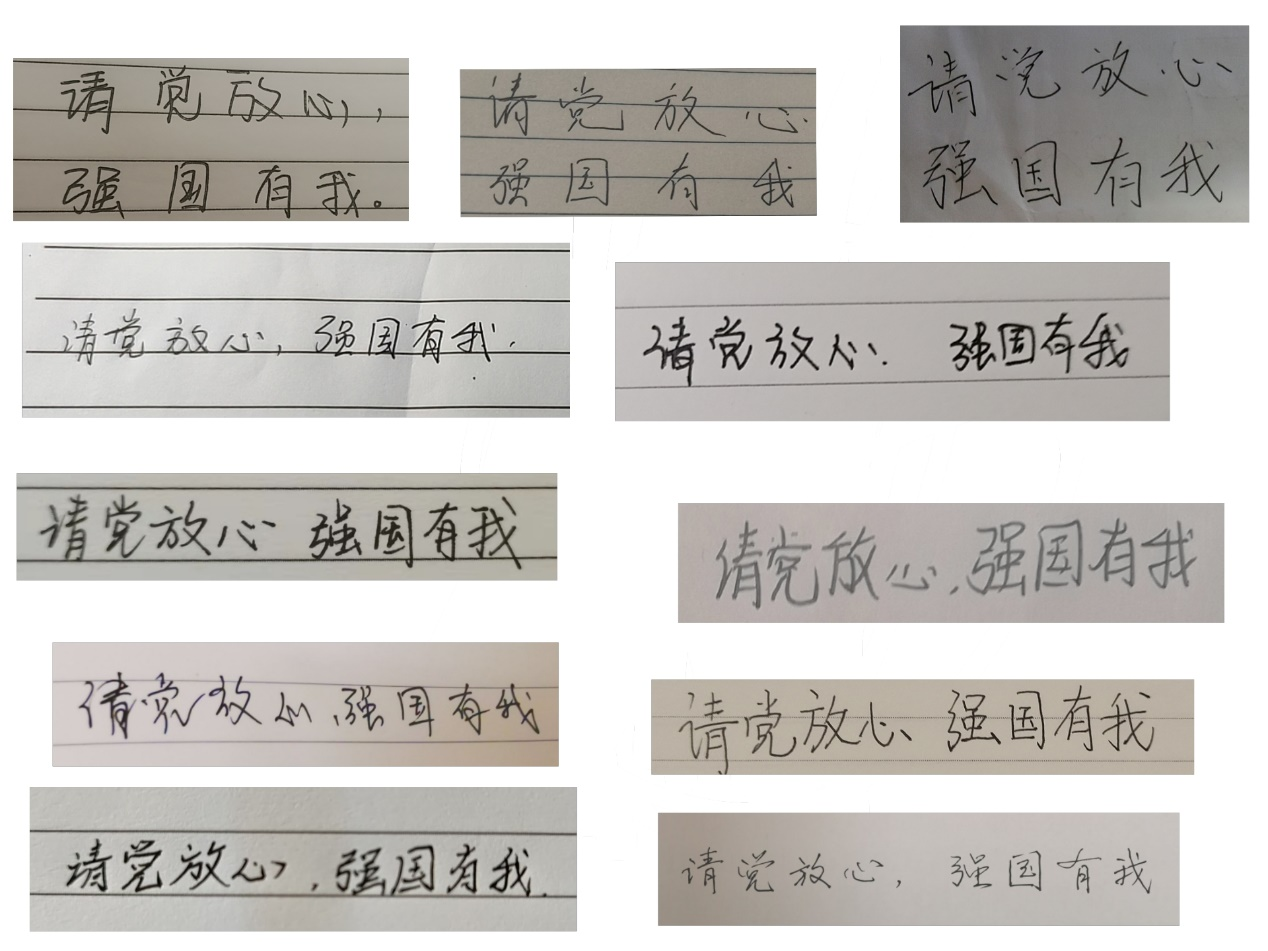 请党放心，，
强国有我。
请党放心.
强国有我
请党放心、
强国有我
请党放心，强国有我.
请党放心. 强国有我
请党放心 强国有我
请党放心，强国有我
请党放心，强国有我
请党放心、强国有我
请党放心，强国有我.
请党放心，强国有我